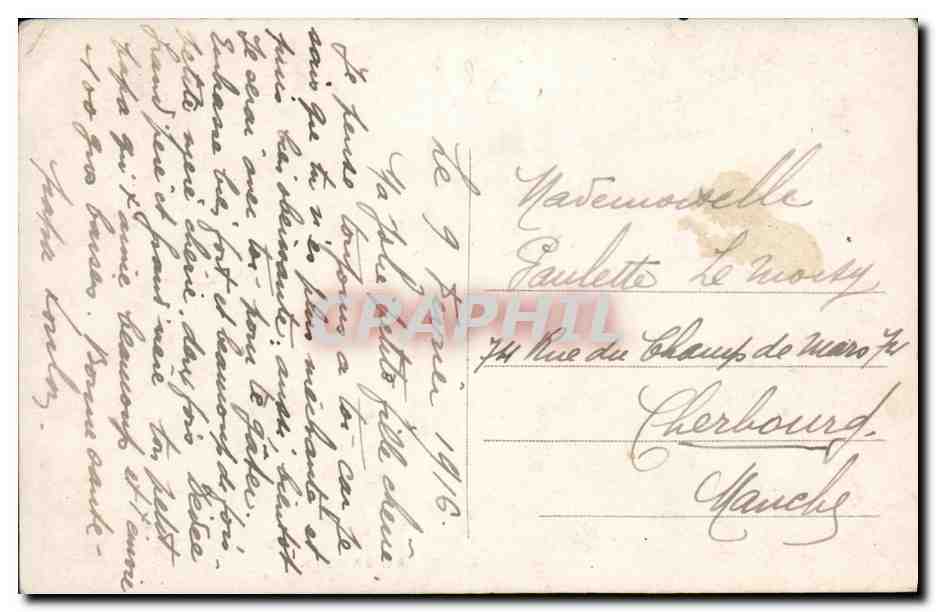 Le 9 Février 1916.
Ma jolie petite fille chérie
Je pense toujours a toi car je
sais que tu n'es plus méchante et
puis bien obeissante: aussi bientôt
Je serai avec toi pour te gâter.
Embrasse bien fort et beaucoup de fois
petite mère chérie, deux fois Dédée
grand père et grand mère ton petit
papa qui t'aime beaucoup et t'envoie
100 gros baisers. Bonne santé -
Mademoiselle
Paulette Le Moisy
74 Rue du Champ de Mars 74
Cherbourg.
Manche
CPAPHIL